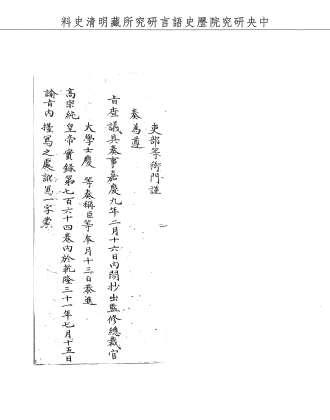 中央研究院歷史語言研究所藏明清史料
吏部等衙門謹
奏為遵
旨查議具奏事嘉慶九年二月十六日內閣抄出監修總裁官
大學士慶 等奏稱臣等本月十三日恭進
高宗純皇帝實錄第七百六十四卷內於乾隆三十一年七月十五日
諭旨內擡寫之處訛寫一字實